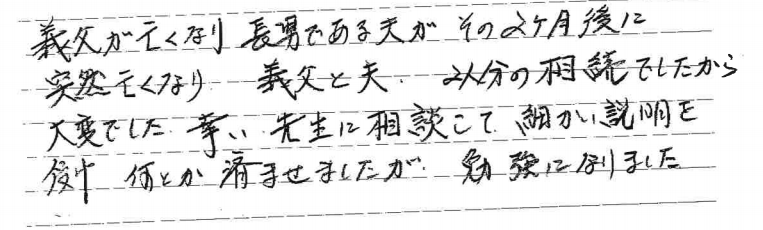 義父が亡くなり 長男である夫が その2ヶ月後に
突然亡くなり 義父と夫. 2人分の相続でしたから
大変でした 幸い 先生に相談して 細かい説明を
受け 何とか 済ませましたが. 勉強になりました